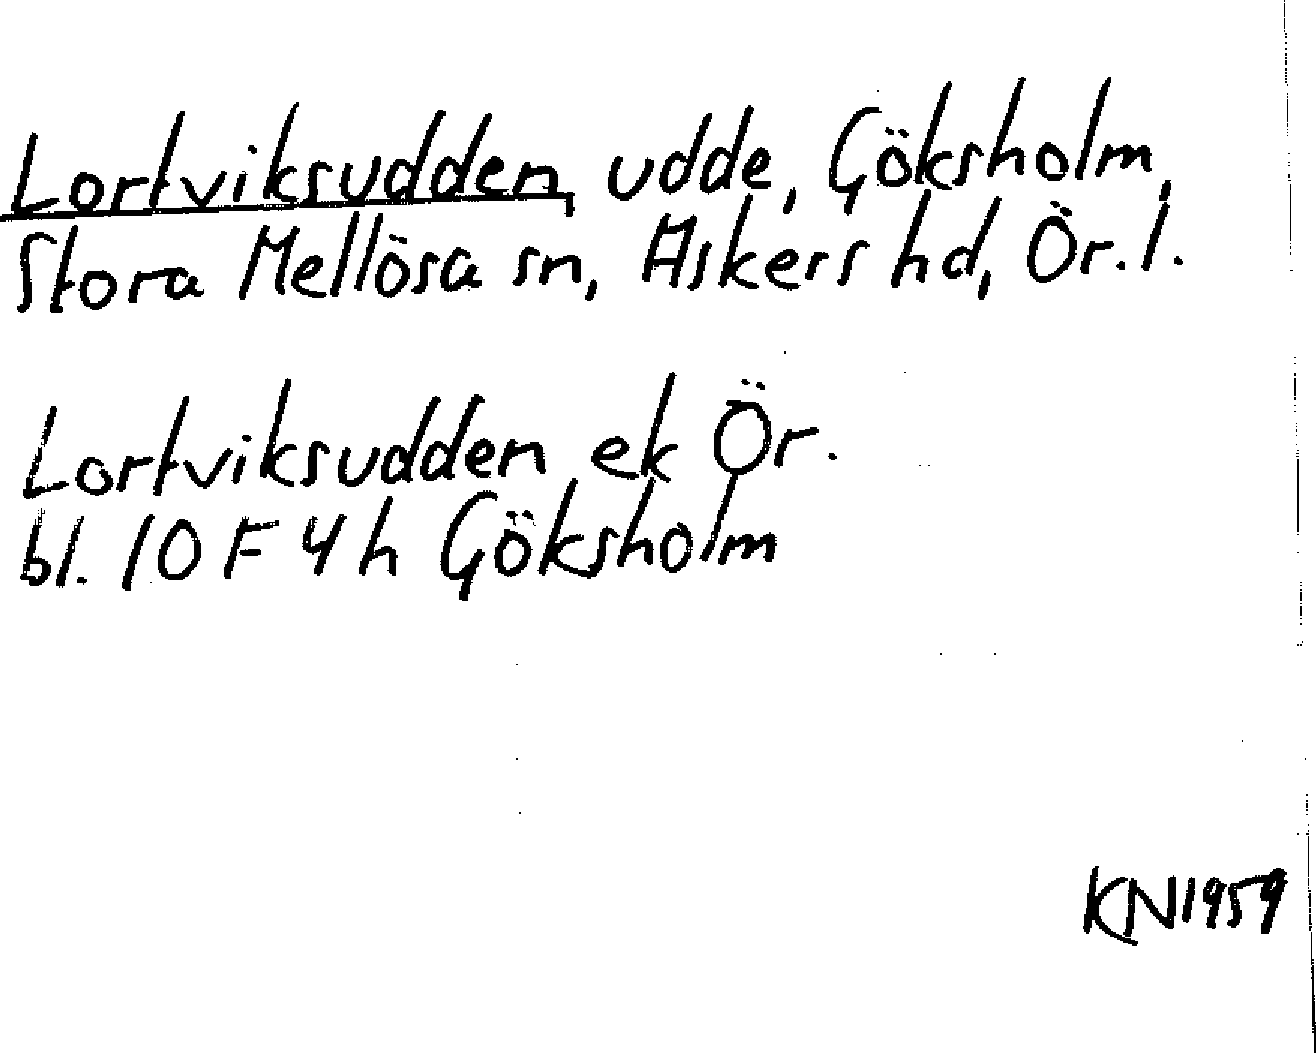 Lortviksudden, udde, Göksholm,
Stora Mellösa sn, Askers hd, Ör. l.
Lortviksudden ek Ör.
bl. 10 F 4 h Göksholm
KN1959